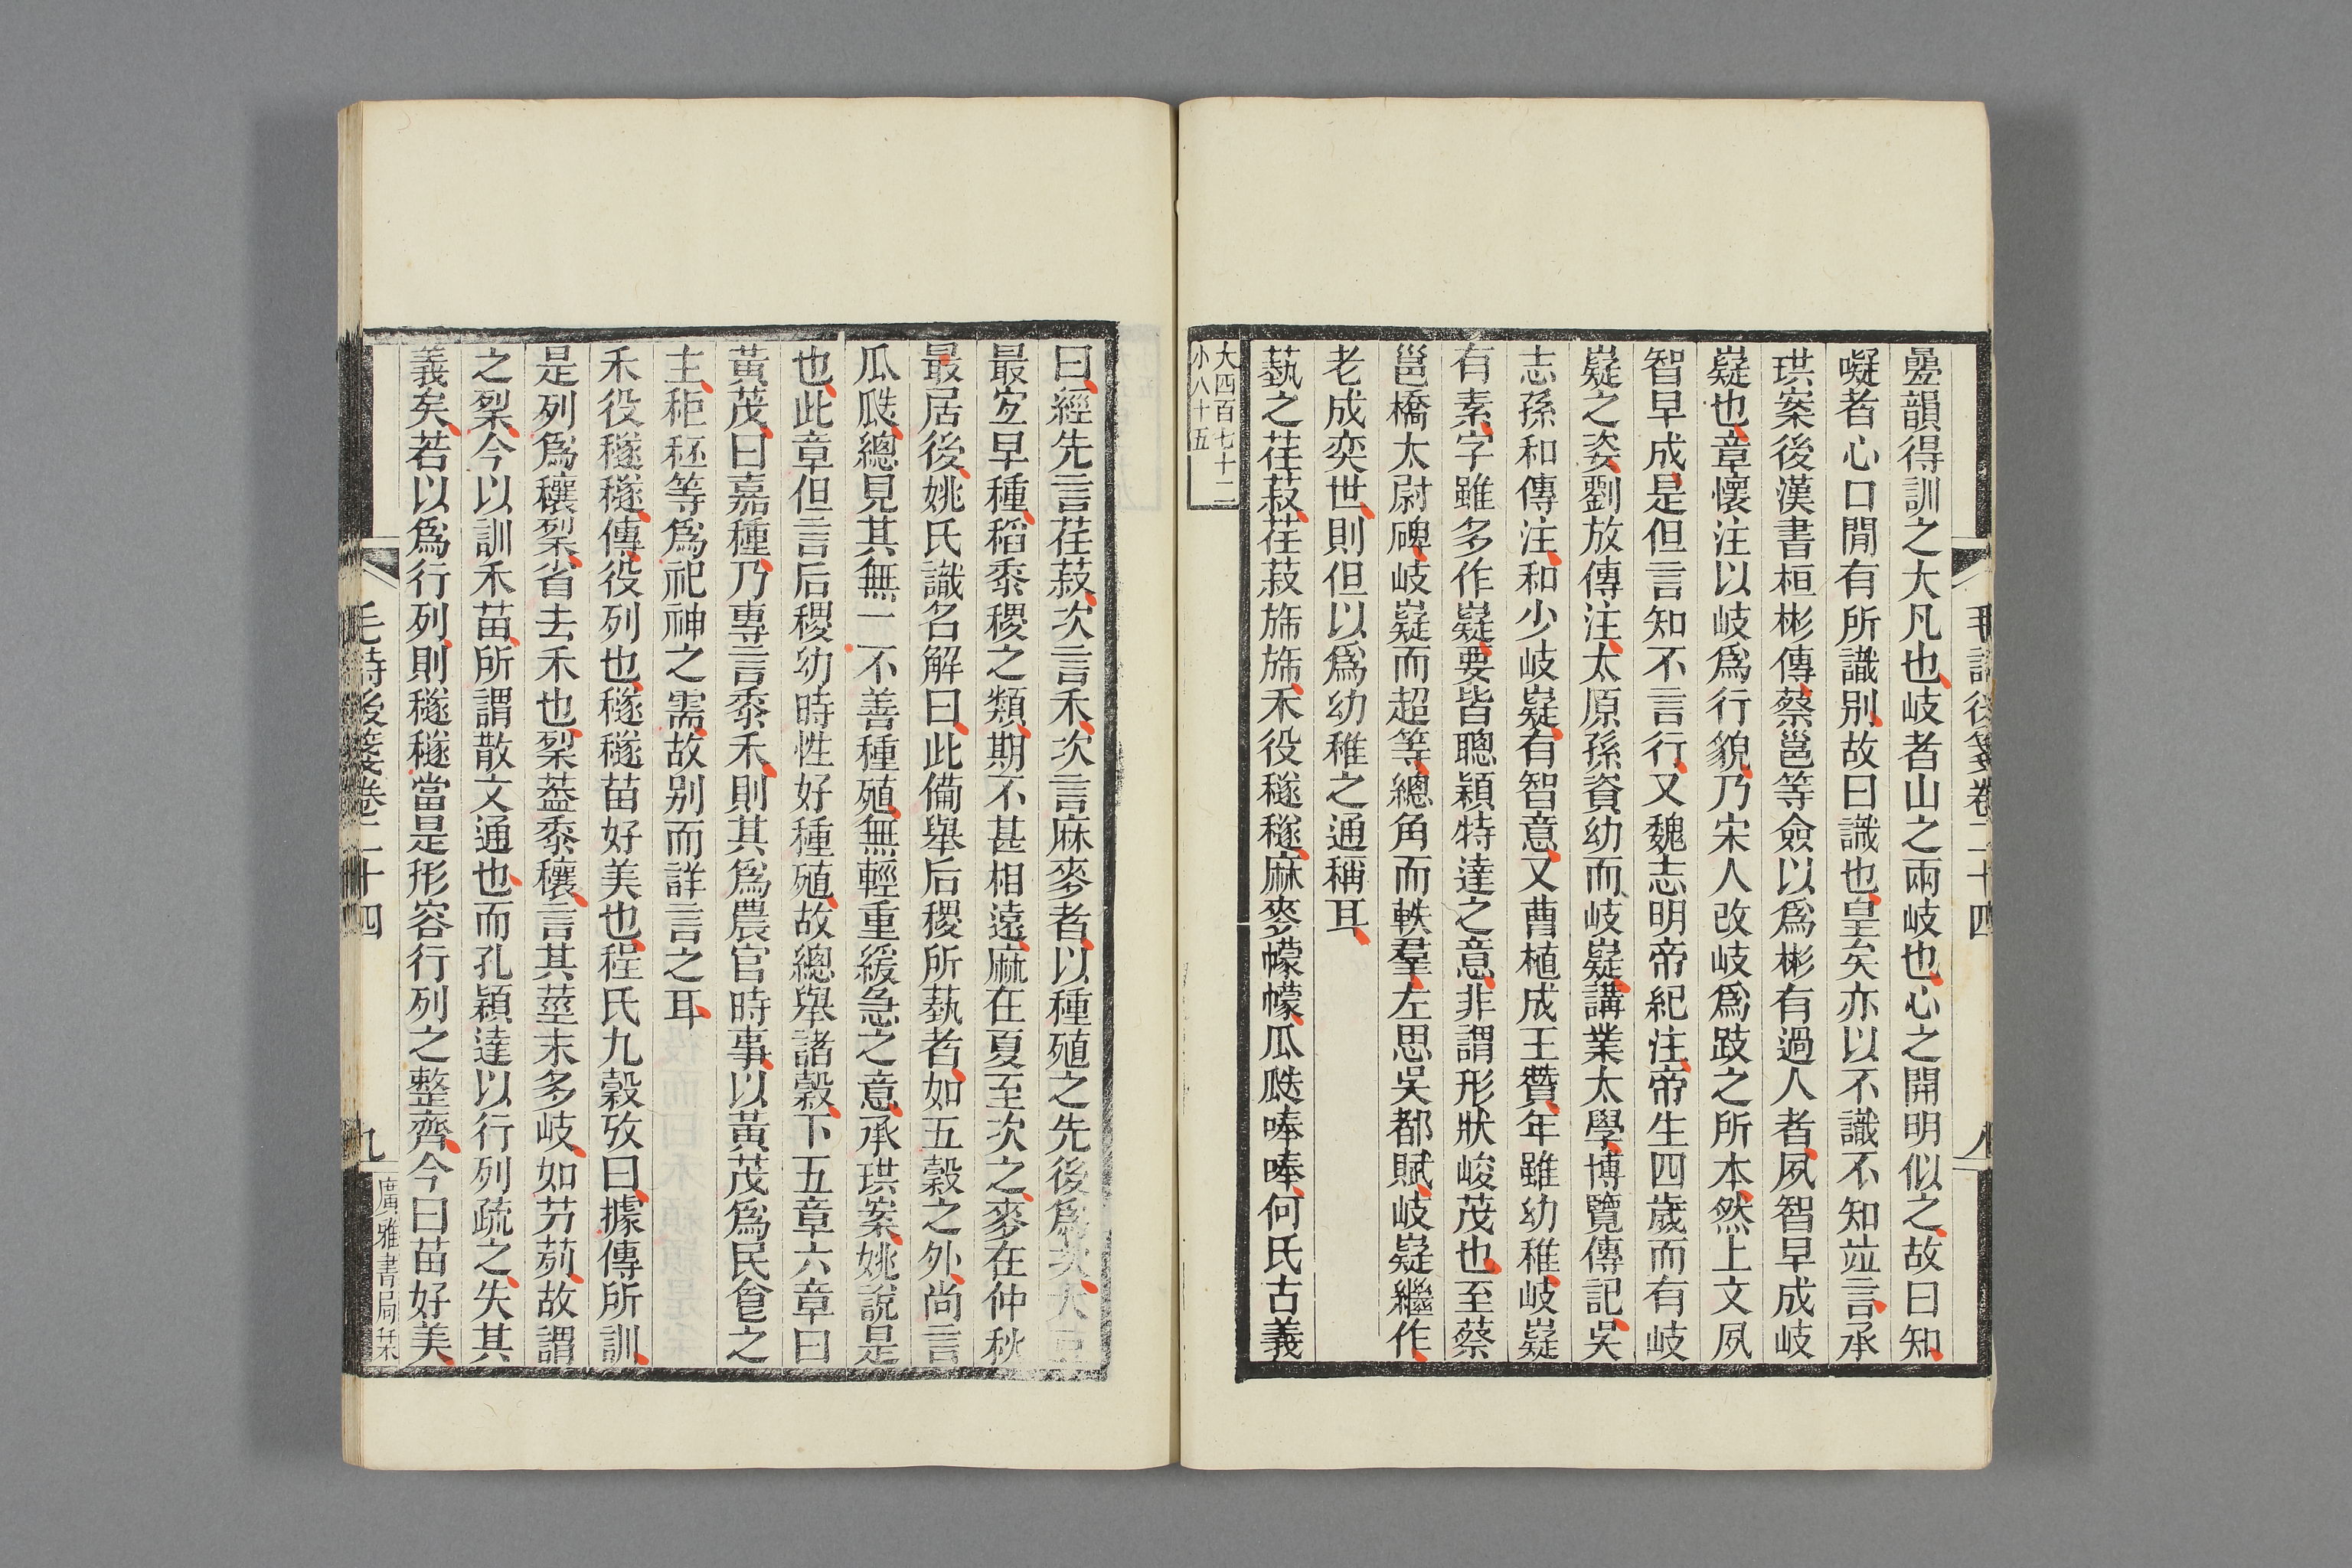 毛詩後箋卷二十四
八
疊韻得訓之大凡也岐者山之兩岐也心之開明似之故曰知
嶷者心口閒有所識別故曰識也皇矣亦以不識不知竝言承
珙案後漢書桓彬傳蔡邕等僉以爲彬有過人者夙智早成岐
嶷也章懷注以岐爲行貌乃宋人改岐爲跂之所本然上文夙
智早成是但言知不言行又魏志明帝紀注帝生四歲而有岐
嶷之姿劉放傳注太原孫資幼而岐嶷講業太學博覽傳記吳
志孫和傳注和少岐嶷有智意又曹植成王贊年雖幼稚岐嶷
有素字雖多作嶷要皆聰穎特達之意非謂形狀峻茂也至蔡
邕橋太尉碑岐嶷而超等總角而軼羣左思吳都賦岐嶷繼作
老成奕世則但以爲幼稚之通稱耳
蓺之荏菽荏菽旆旆禾役穟穟麻麥幪幪瓜瓞唪唪何氏古義
大四百七十二
小八十五
曰經先言荏菽次言禾次言麻麥者以種殖之先後爲次大豆
最宜早種稻黍稷之類期不甚相遠麻在夏至次之麥在仲秋
最居後姚氏識名解曰此備舉后稷所蓺者如五穀之外尚言
瓜瓞總見其無一不善種殖無輕重緩急之意承珙案姚說是
也此章但言后稷幼時性好種殖故總舉諸穀下五章六章曰
黃茂曰嘉種乃專言黍禾則其爲農官時事以黃茂爲民食之
主秬秠等爲祀神之需故別而詳言之耳
禾役穟穟傳役列也穟穟苗好美也程氏九穀攷曰據傳所訓
是列爲穰䅀省去禾也䅀葢黍穰言其莖末多岐如艻茢故謂
之䅀今以訓禾苗所謂散文通也而孔穎達以行列疏之失其
義矣若以爲行列則穟穟當是形容行列之整齊今曰苗好美
毛詩後箋卷二十四
九
廣雅書局栞